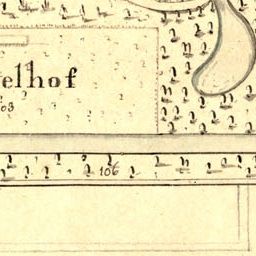 elhof
03
106